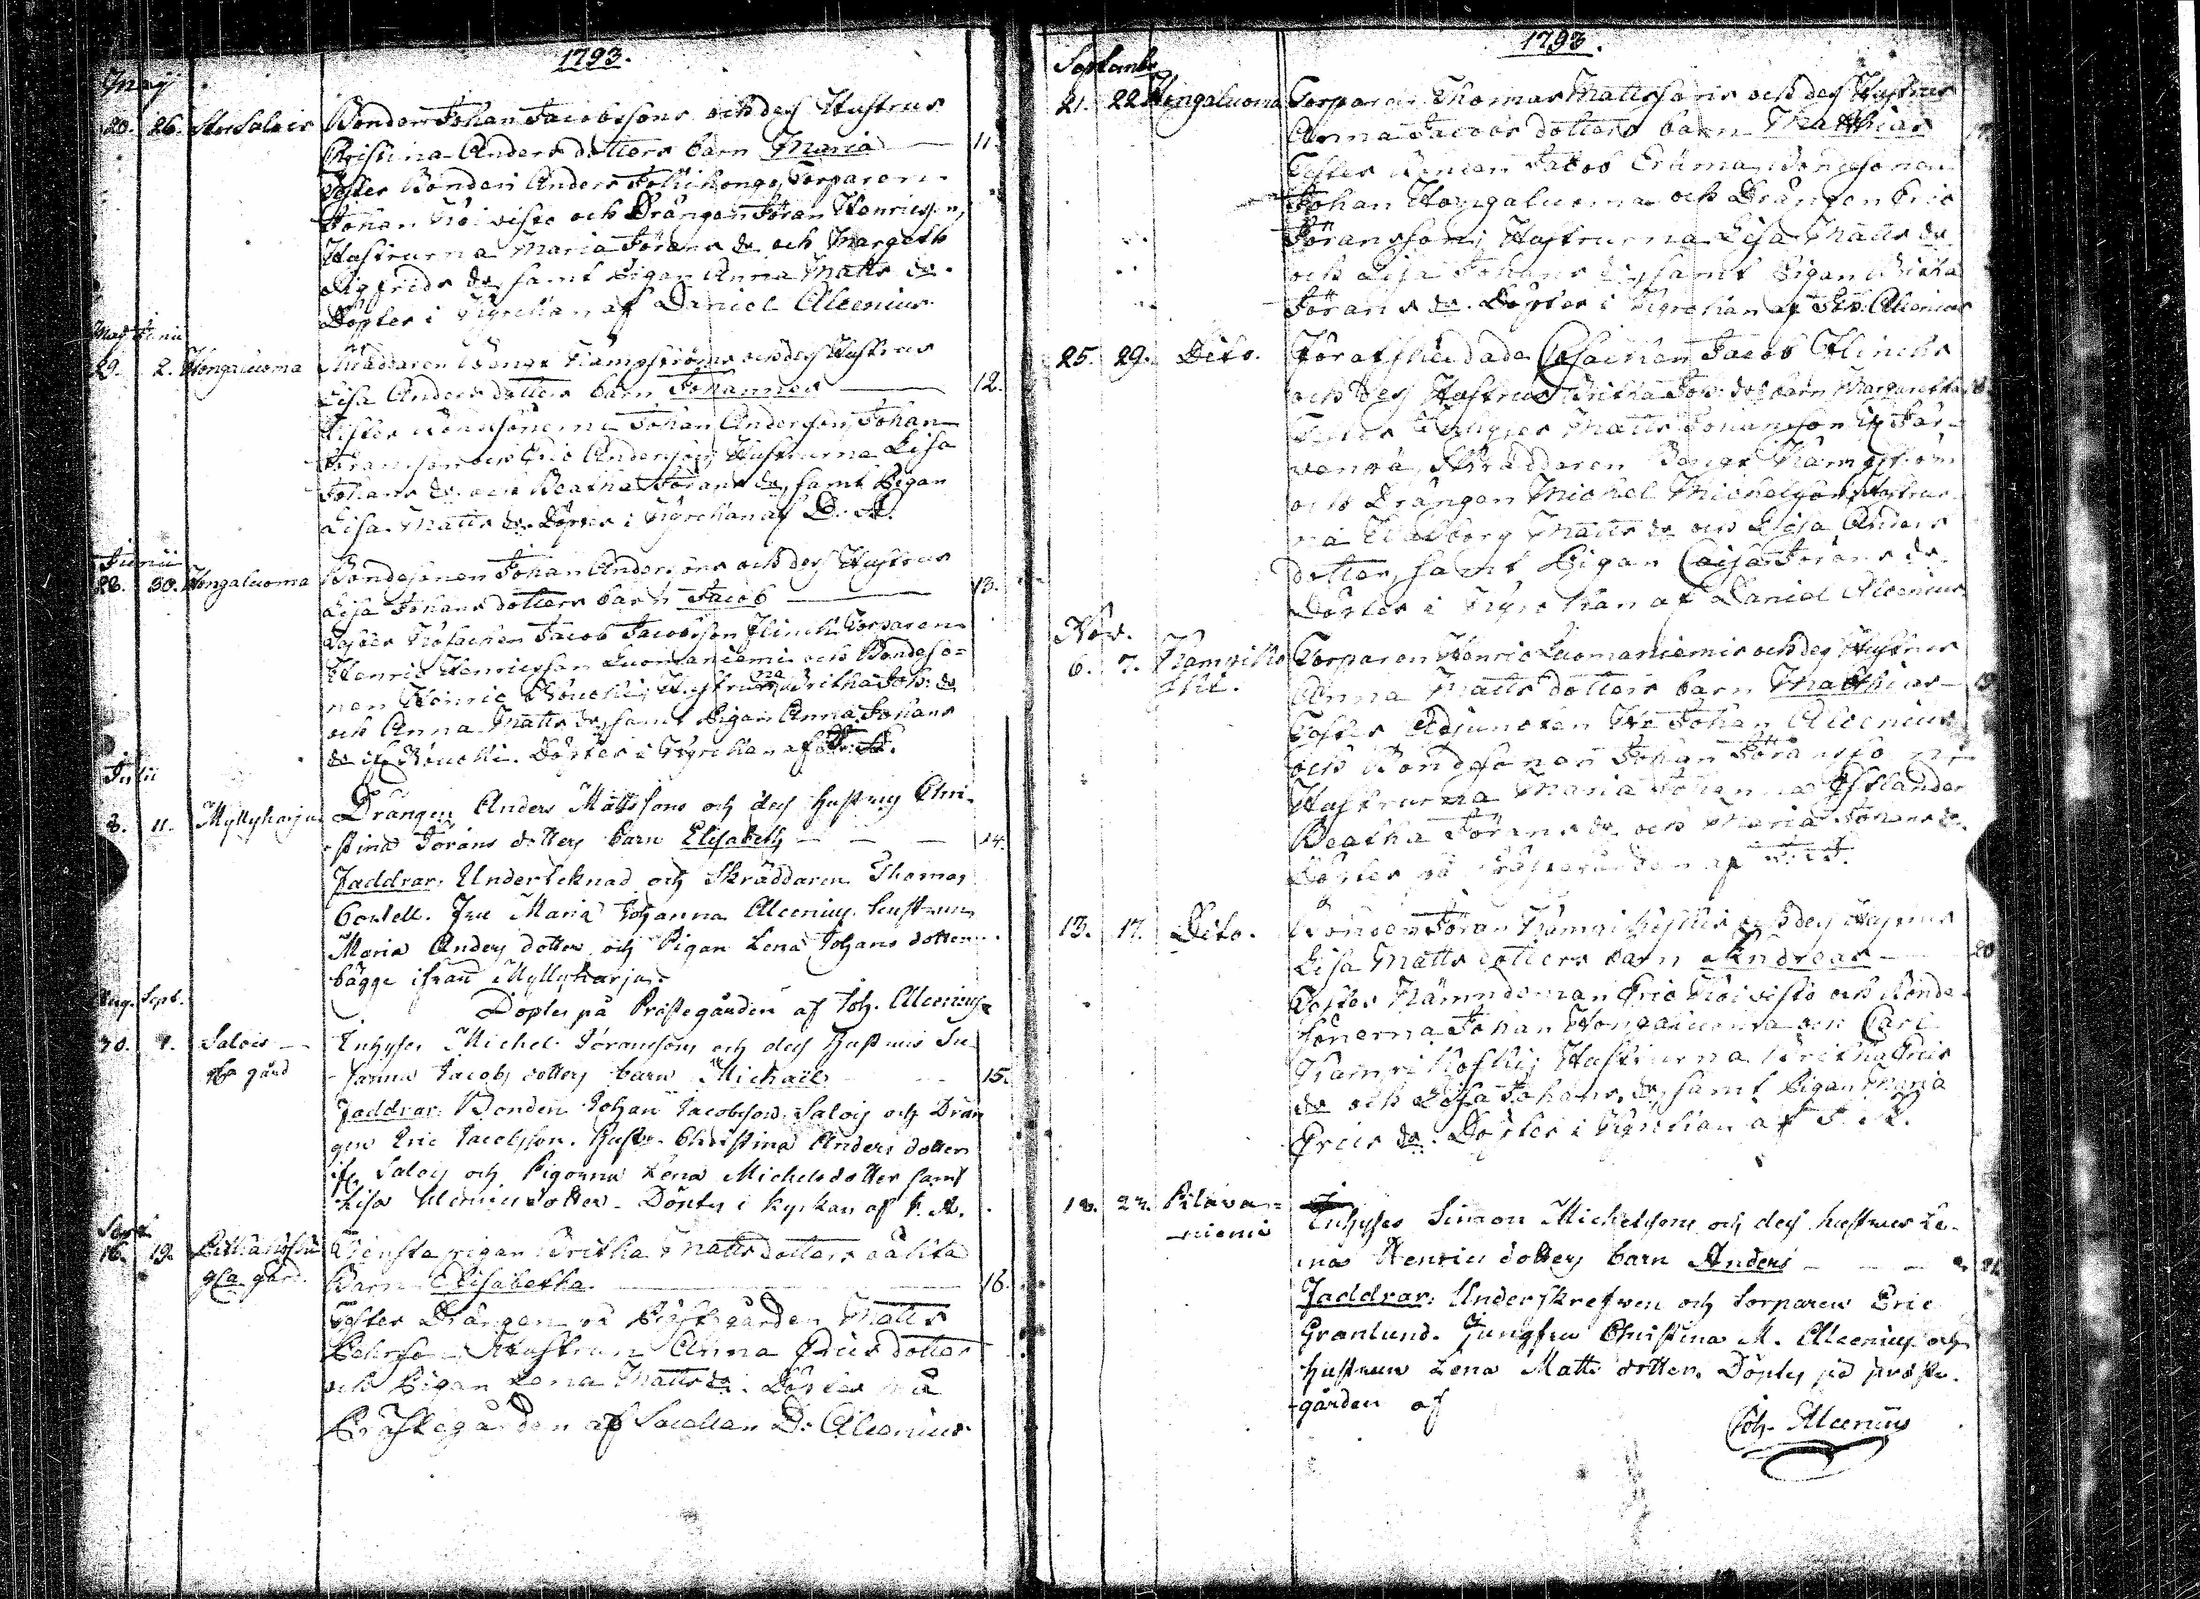 1793.
May
20. 26. Stor Salois Bonden Johan Jacobssons och dess Hustrus
Christina Anders dotters barn Maria — 11.
Testes Bonden Anders Torparen
Johan Koivisto och Drängen Jöran Henricsson,
Hustrurna Maria Jörans dr och Margeth
Sigfrids dr samt Pigan Anna Matts dr.
Döptes i Kyrckan af Daniel Alcenius
May Junii
29. 2. Hongaluoma Skräddaren Bengt Kämpströms och dess Hustrus
Lisa Anders dotters barn Johannes — 12.
Testes Bondsönerne Johan Andersson, Johan
Jöransson och Eric Andersson, Hustrurna Lisa
Johans dr och Beatha Jörans dr, samt Pigan
Lisa Matts dr. Döptes i Kyrckan af D. A.
Junii
28. 30. Hongaluoma Bondesonen Johan Anderssons och dess Hustrus
Lisa Johans dotters barn Jacob — 13.
Testes Jacob Jacobsson Flinck Torparen
Henric Henricsson Luomaniemi och Bondeso=
nen Henric Hustrurna Britha Joh. dr
och Anna Matts dr, samt Pigan Anna Johans
dr Döptes i Kyrckan af D. A.
Julii
8. 11. Myllykarju Drängen Anders Mattssons och dess hustrus Chri-
stina Jörans dotters barn Elisabeth — — — 14.
Faddrar: Underteknad och Skräddaren Thomas
Fru Maria Johanna Alcenius, hustrun
Maria Anders dotter och Pigan Lena Johans dotter
bägge ifrån Myllykarju.
Döptes på Prästegården af Joh. Alcenius
Aug. Sept.
30. 1. Salois Inhyses Michel Jöranssons och dess hustrus Su-
gård sanna Jacobs dotters barn Michael — 15.
Faddrar: Bonden Johan Jacobsson Salois och Drän
gen Eric Jacobsson. Hustr. Christina Anders dotter
ifr. Salois och Pigorna Lena Michelsdotter samt
Lisa dotter. Döptes i kyrkan af J. A.
Sept.
16. 19. Tjensta pigan Britha Matts dotters oäkta
gård. Barn Elisabetha — 16.
Testes Drängen på Prästgården Matts
Hustrun Anna Erics dotter
och Pigan Lena Matts dr. Döptes på
Prästegården af Sacellan D: Alcenius
1793.
Septemb.
21. 22 Hongaluoma Torparen Thomas Mattssons och dess Hustrus
Anna Jacobs dotters barn Matthias
Testes Bonden Jacob Bondesonen
Johan Hongaluoma och Drängen Eric
Jöransson; Hustrurna Lisa Matts dr
och Lisa Johans dr, samt Pigan Britha
Jörans dr. Döptes i Kyrckan af Joh. Alcenius
25. 29. Dito. Förafskedade Jacob Flincks
och dess Hustrus Britha Joh. drs barn Margaretha
Testes Inhyses Matts Johansson
Skräddaren Bengt Kämpström
och Drängen Michel Michelsson, Hustrur-
na Matts dr och Lisa Anders
dotter, samt Pigan Caisa Jörans dr
Döptes i Kyrckan af Daniel Alcenius
Nov.
6. 7. Torparen Henric Luomaniemis och dess Hustrus
Anna Matts dotters barn Matthias — 19
Testes Adjuncten Hr Johan Alcenius
och Bondsonen Johan Jöransson;
Hustrurna Maria Johanna
Beatha Jörans dr och Maria Johans dr
Döptes på Prästegården af
13. 17. Dito. Bonden Jöran och dess Hustrus
Lisa Matts dotters barn Andreas — 20
Testes Nämndeman Eric Koivisto och Bonde
sönerna Johan Hongaluoma och Carl
Hustrurna Britha Erics
dr och Lisa Johans dr, samt Pigan Maria
Erics dr. Döptes i Kyrckan af J. A.
18. 24. Pilava= Inhyses Simon Michelssons och dess hustrus Le-
niemi na Henrics dotters barn Anders — — — 21
Faddrar: Underskrefven och torparen Eric
Granlund. Jungfru Christina M. Alcenius och
hustrun Lena Matts dotter. Döptes på präste-
gården af
Joh. Alcenius